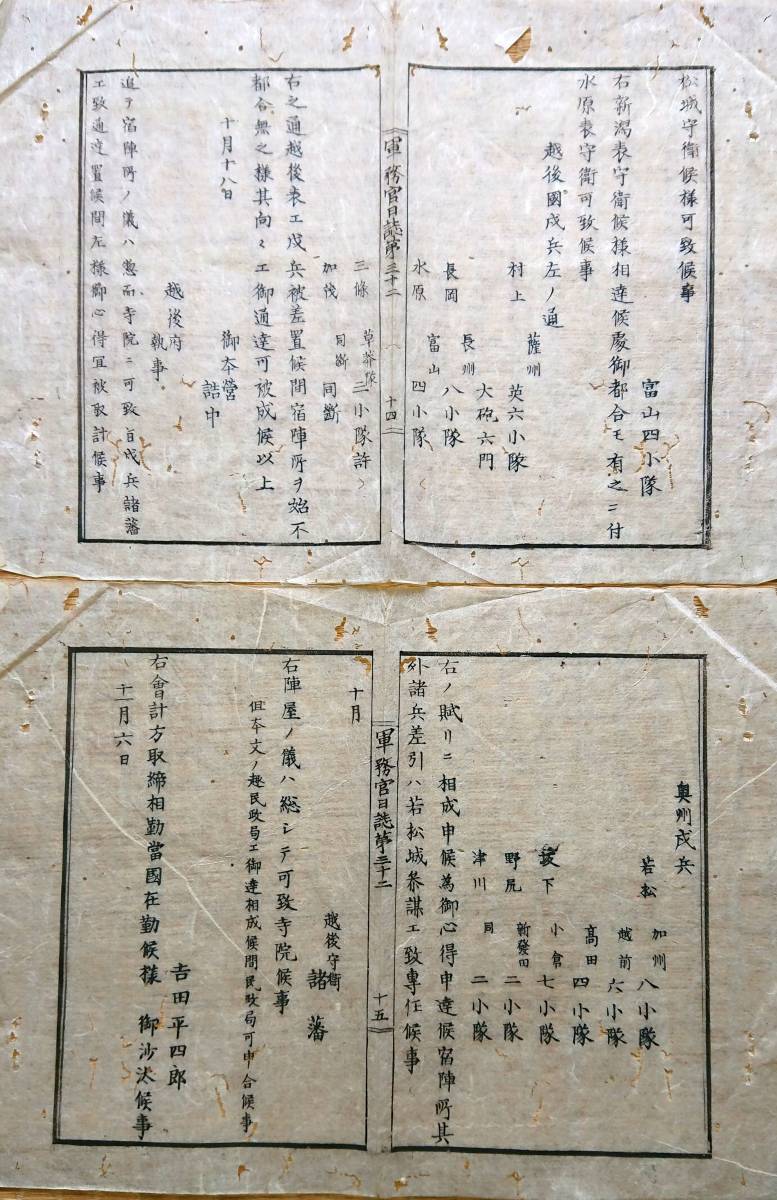 松城守衞候様可致候事
富山四小隊
右新潟表守衞候様相達候處御都合モ有之ニ付
水原表守衞可致候事
越後國戍兵左ノ通
村上　薩州　英六小隊
大砲六門
長岡　長州　八小隊
水原　富山　四小隊
軍務官日誌第三十二　十四
三條　草莽隊　三小隊許
加茂　同斷　同斷
右之通越後表エ戍兵被差置候間宿陣所ヲ始不
都合無之様其向々エ御通達可被成候以上
十月十八日
御本營
詰中
越後府
執事
追テ宿陣所ノ儀ハ惣而寺院ニ可致旨戍兵諸藩
エ致通達置候間左様御心得宜被取計候事
奥州戍兵
若松　加州　八小隊
越前　六小隊
高田　四小隊
坂下　小倉　七小隊
野尻　新發田　二小隊
津川　同　二小隊
右ノ賦リニ相成申候為御心得申達候宿陣所其
外諸兵差引ハ若松城参謀エ致專任候事
軍務官日誌第三十二　十五
十月
越後守衞
諸藩
右陣屋ノ儀ハ総シテ可致寺院候事
但本文ノ趣民政局エ御達相成候間民政局可申合候事
吉田平四郎
右會計方取締相勤當國在勤候様　御沙汰候事
十一月六日